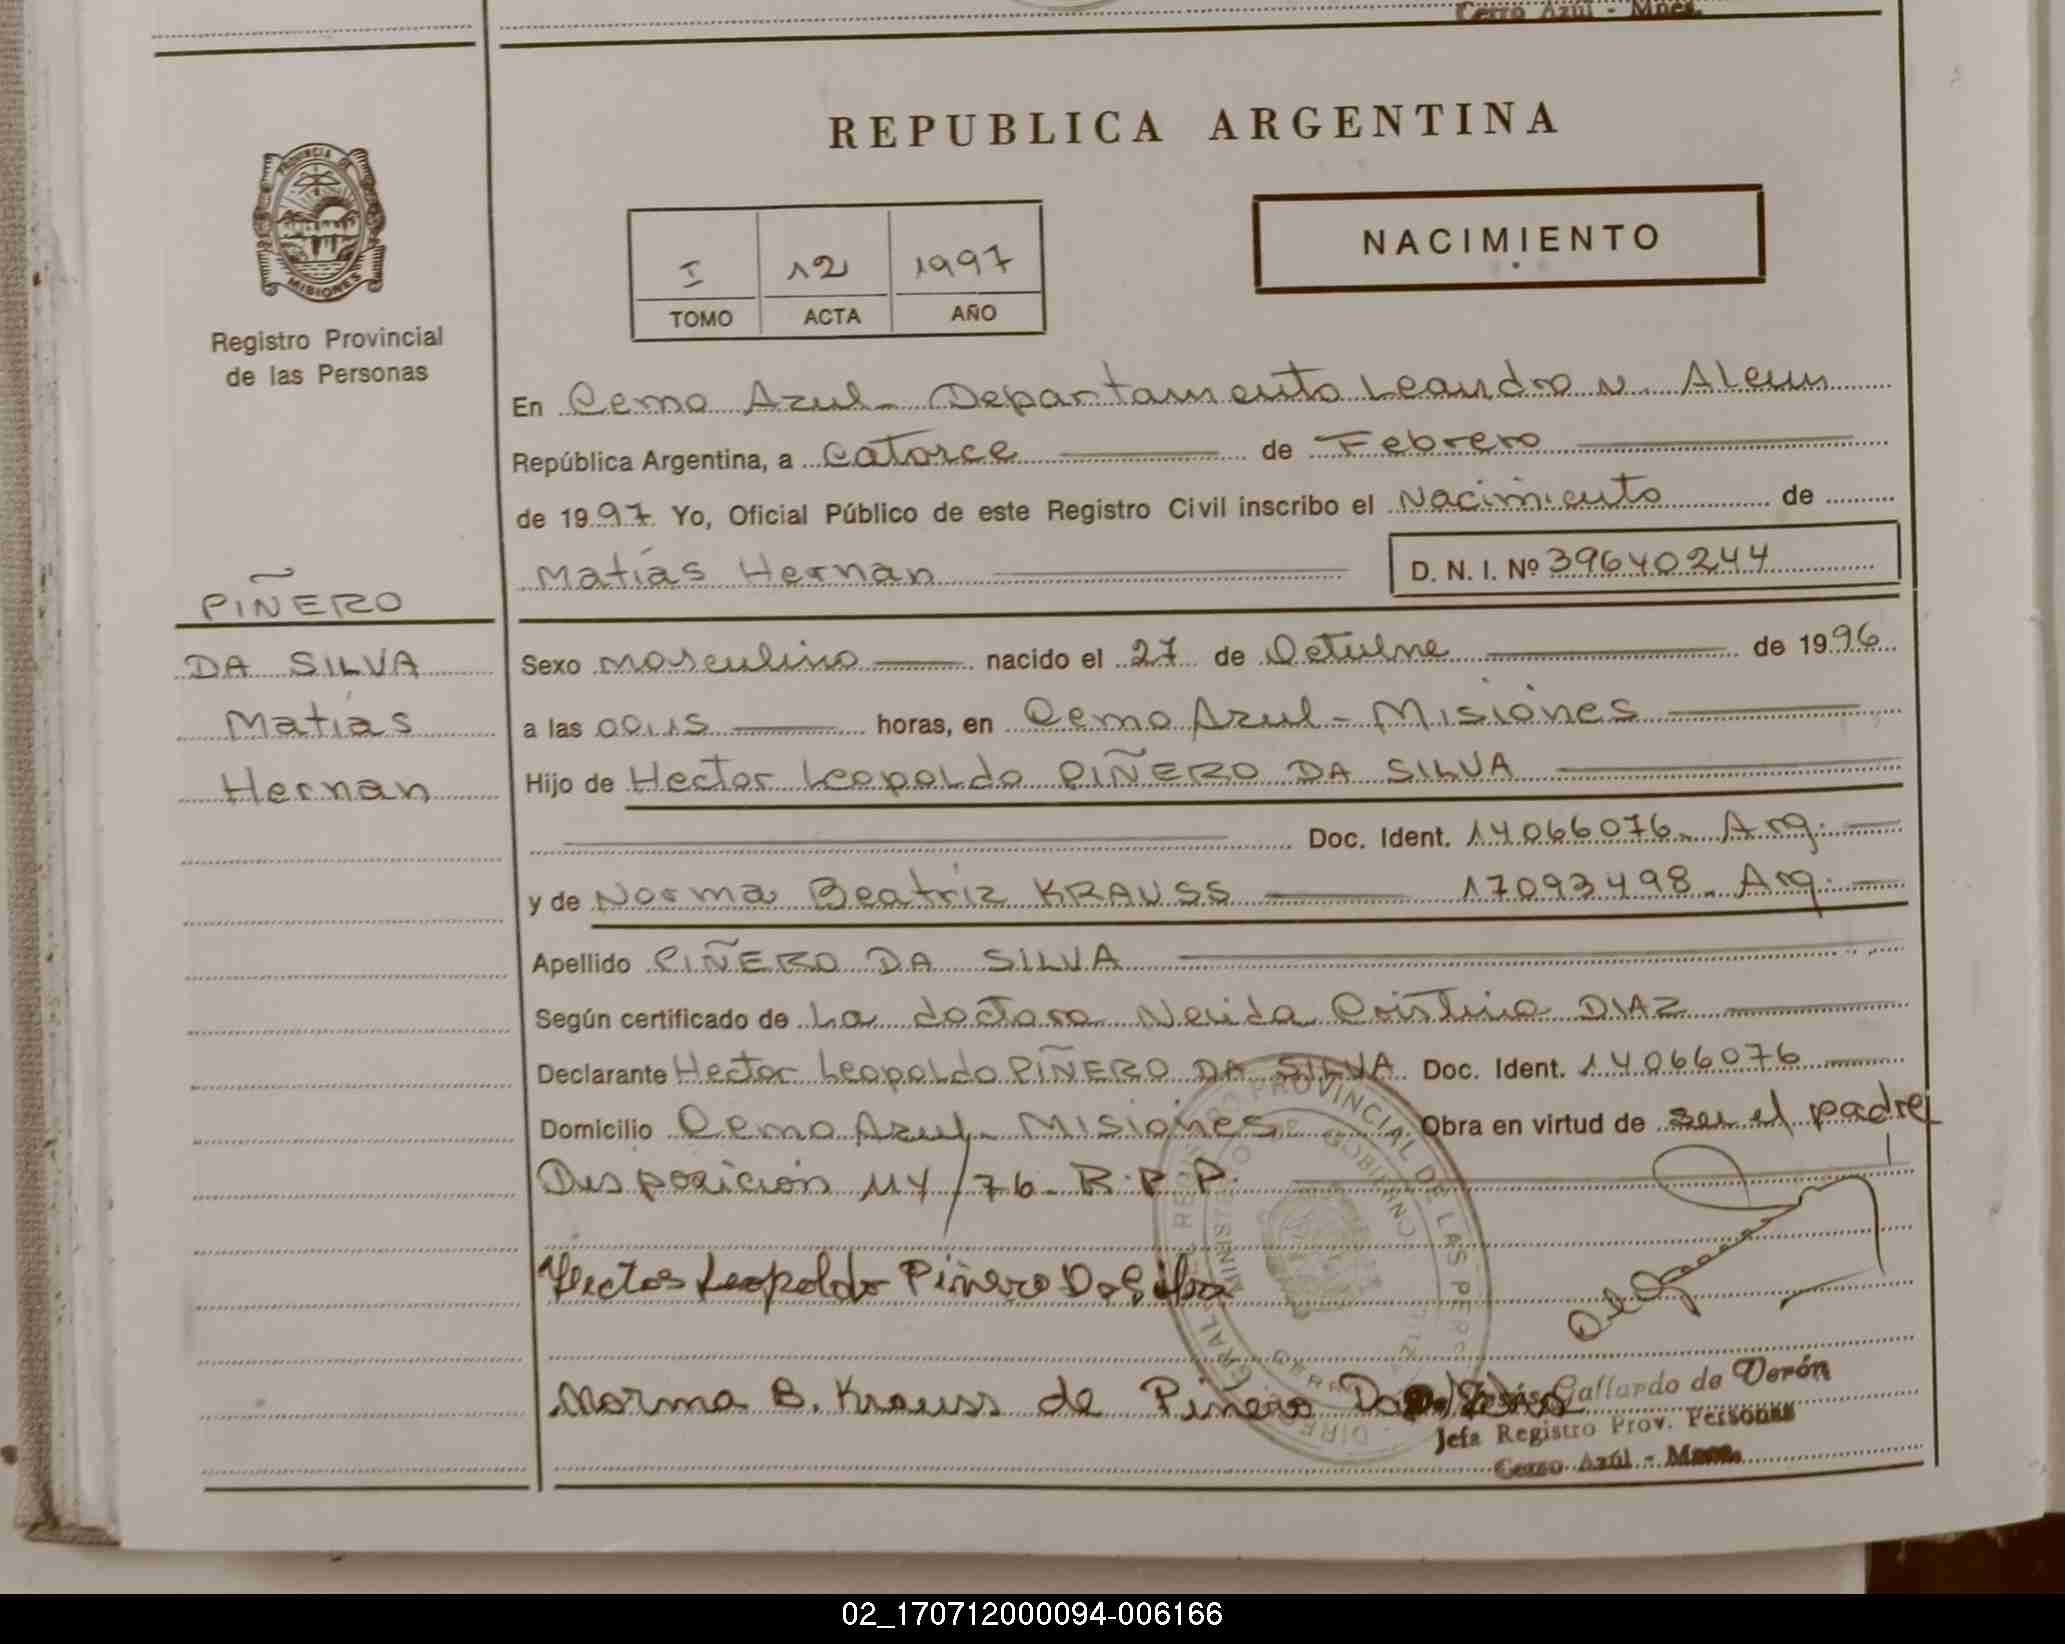 Cerro Azúl - Mnes.
REPUBLICA ARGENTINA
PROVINCIA DE
MISIONES
Registro Provincial
de las Personas
I 12 1997
TOMO ACTA AÑO
NACIMIENTO
En Cerro Azul - Departamento Leandro N. Alem
República Argentina, a Catorce de Febrero
de 1997 Yo, Oficial Público de este Registro Civil inscribo el Nacimiento de
Matías Hernan D. N. I. Nº 39640244
PIÑERO
DA SILVA
Matías
Hernan
Sexo masculino nacido el 27 de Octubre de 1996
a las horas, en Cerro Azul - Misiones
Hijo de Hector Leopoldo PIÑERO DA SILVA
Doc. Ident. 14066076. Arg.
y de Norma Beatriz KRAUSS 17093498. Arg.
Apellido PIÑERO DA SILVA
Según certificado de La doctora Cristina DIAZ
Declarante Hector Leopoldo PIÑERO DA SILVA Doc. Ident. 14066076
Domicilio Cerro Azul - Misiones Obra en virtud de ser el padre
Disposición 114/76 - R.P.P.
Hector Leopoldo Piñero Da Silva
Norma B. Krauss de Piñero Da Silva
Gallardo de Verón
Jefa Registro Prov. Personas
Cerro Azúl - Mnes.
02_170712000094-006166